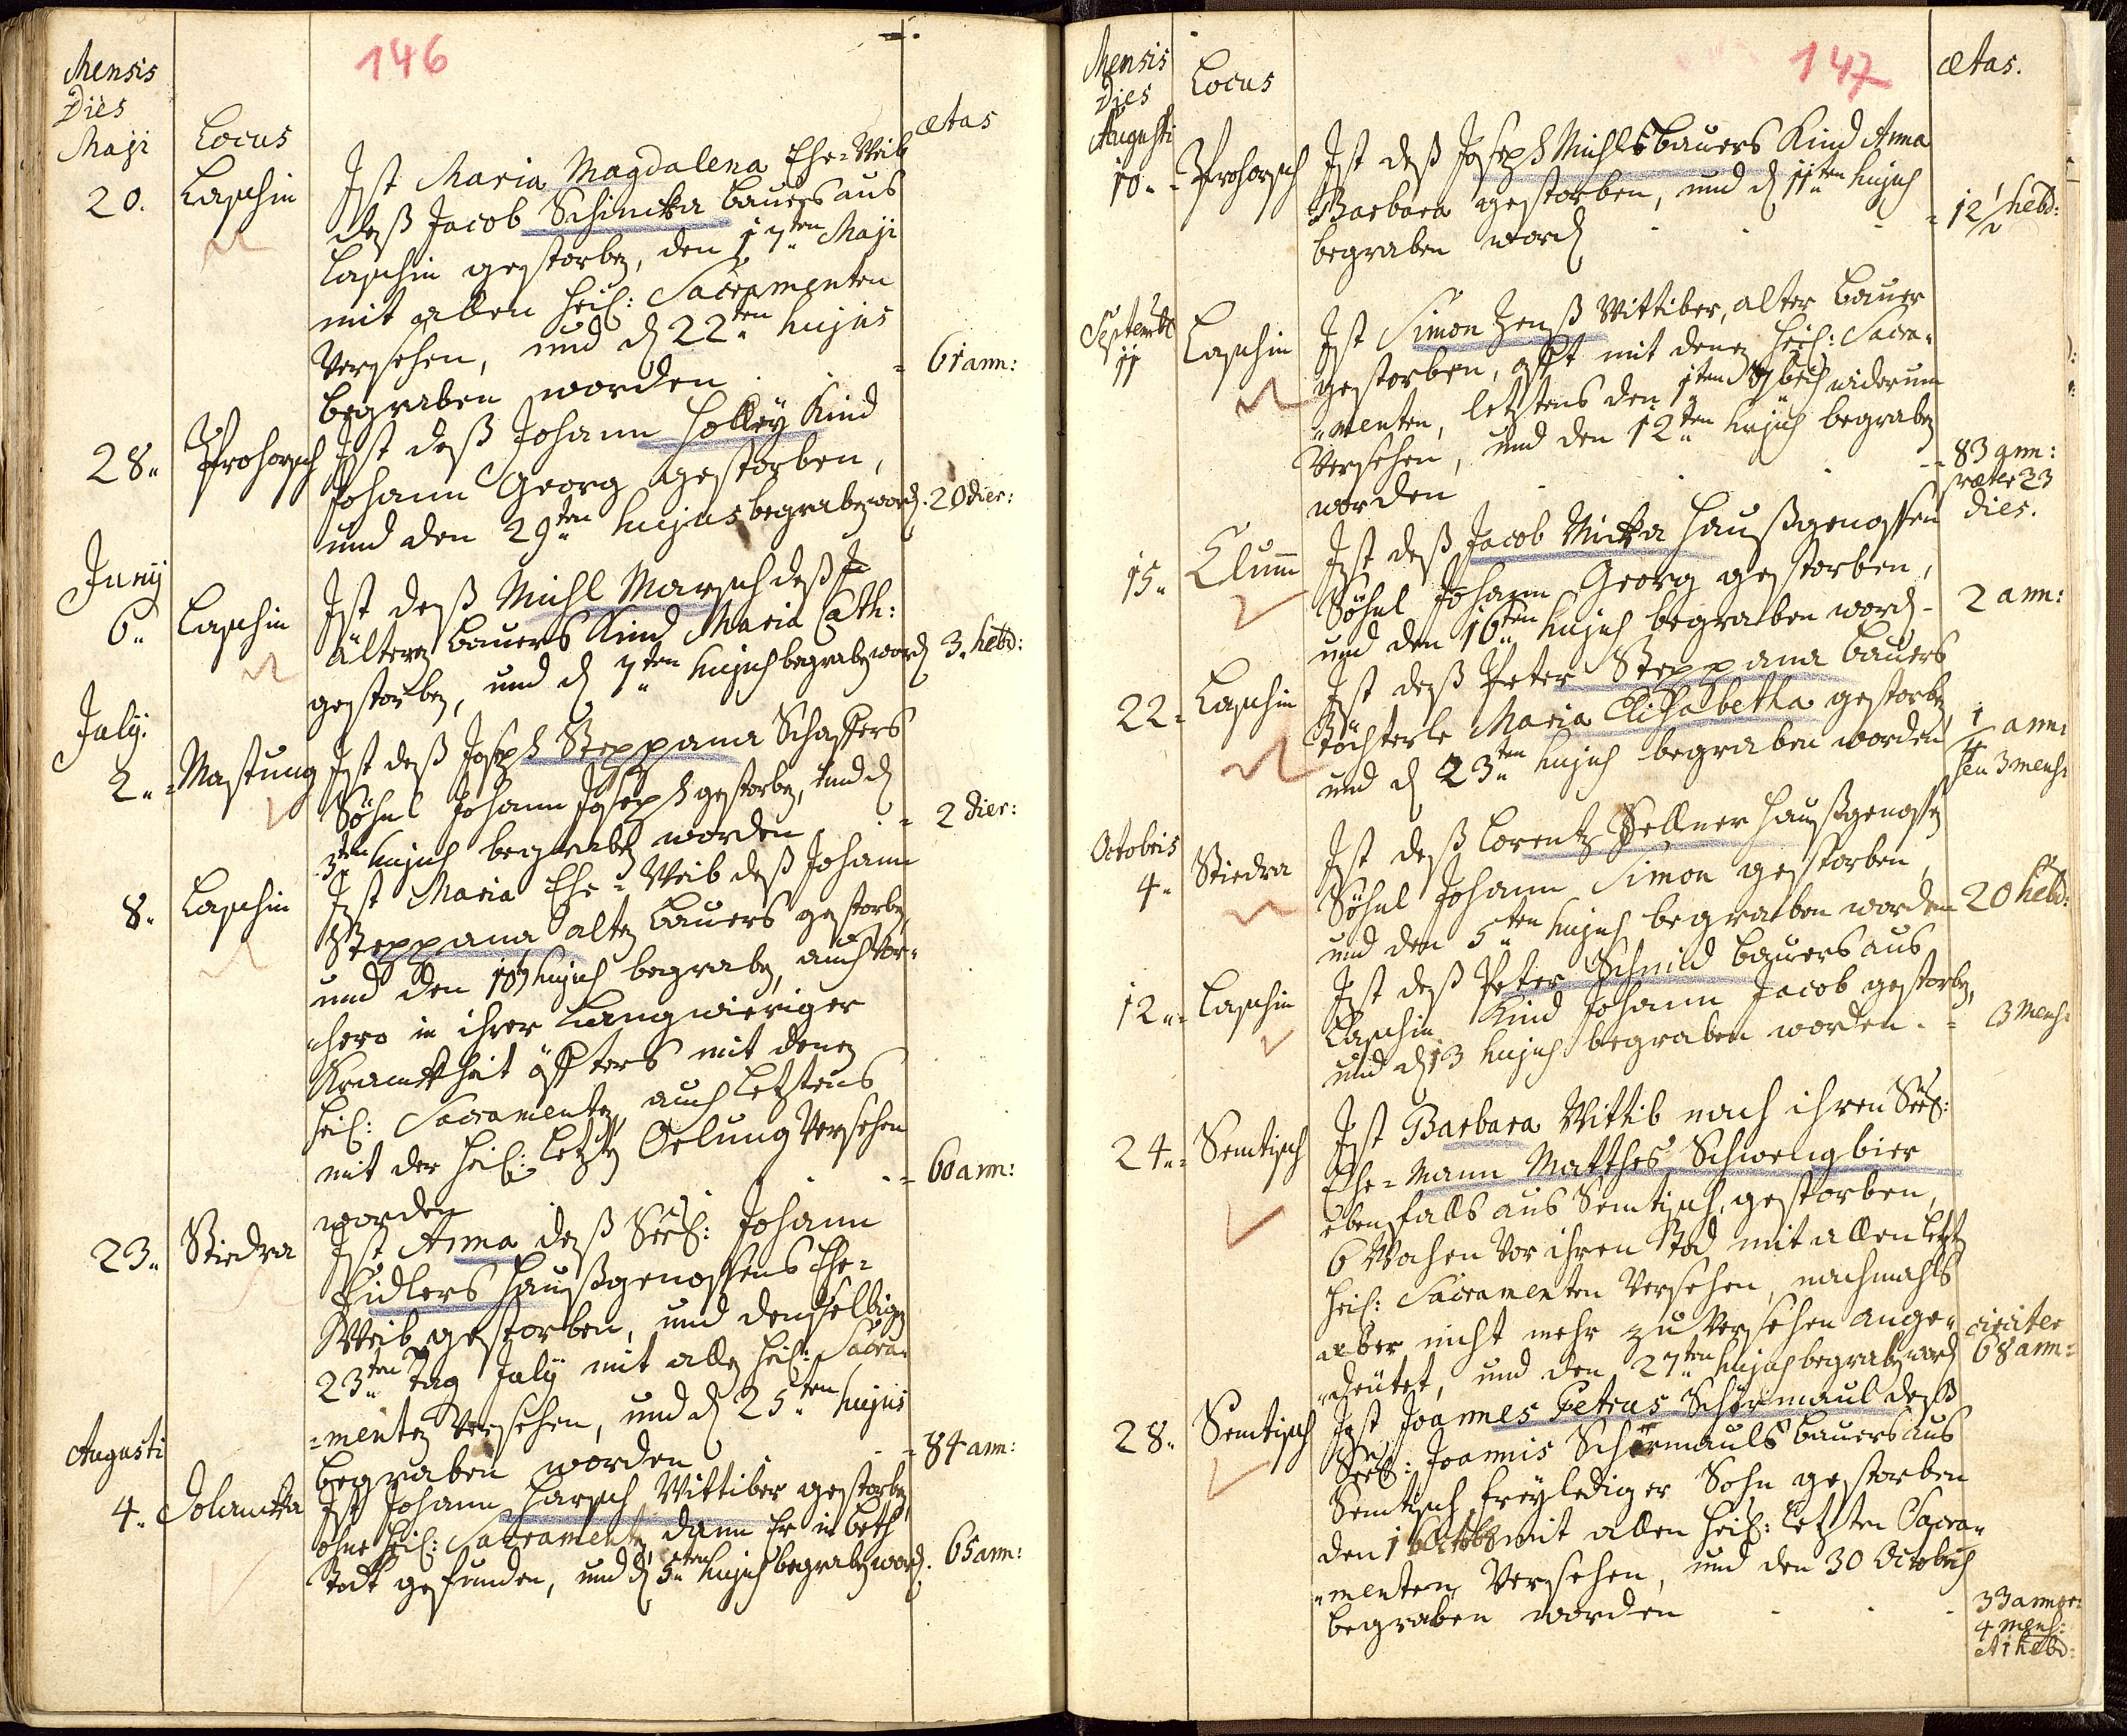 146
Mensis
Dies
Maji
Locus
ætas
20.
Laschin
Ist Maria Magdalena Ehe-Weib
deß Jacob Schincka Bauers aus
Laschin gestorben, den 17ten Maji
mit allen heil: Sacramenten
Versehen, und d 22ten hujus
begraben worden
61 ann:
28.
Prohorsch
Ist deß Johann Holley Kind
Johann Georg gestorben,
und den 29ten hujus begraben word.
20 dier:
Junij
6.
Laschin
Ist deß Michl Marsch deß
älteren Bauers Kind Maria Cath:
gestorben, und d 7ten hujus begraben word
3. hebd:
July
2.
Mastung
Ist deß Joseph Steppana Schaffers
Söhnl Johann Joseph gestorben, und d
3ten hujus begraben worden
2 dier:
8.
Laschin
Ist Maria Ehe-Weib deß Johann
Steppana alten Bauers gestorben,
und den 10 hujus begraben, auch vor-
hero in ihrer Langwieriger
Kranckheit öffters mit denen
heil: Sacramenten, auch letztens
mit der heil: letzten Oelung Versehen
worden
60 ann:
23.
Stiedra
Ist Anna deß Seel: Johann
Fidlers Haußgenossens Ehe-
Weib gestorben, und denselbigen
23ten Tag July mit allen heil: Sacra-
menten Versehen, und d 25ten hujus
begraben worden
84 ann:
Augusti
4.
Dolancka
Ist Johann Harsch Wittiber gestorben,
ohne heil: Sacramenten, dann Er in Beth
todt gefunden, und d 5ten hujus begraben word.
65 ann:
147
Mensis
Dies
Augusti
Locus
ætas.
10.
Prohorsch
Ist deß Joseph Michlsbauers Kind Anna
Barbara gestorben, und d 11ten hujus
begraben word
12 1/2 hebd:
Septembr
11
Laschin
Ist Simon Zenß Wittiber, alter Bauer
gestorben, offt mit denen heil: Sacra-
menten, letztens den 1ten 7bris widerum
Versehen, und den 12ten hujus begraben
worden
83 ann:
præter 23
dies.
15.
Clum
Ist deß Jacob Micka Haußgenossen
Söhnl Johann Georg gestorben,
und den 16ten hujus begraben word
2 ann:
22.
Laschin
Ist deß Peter Steppana Bauers
Töchterle Maria Elisabetha gestorben,
und d 23ten hujus begraben worden
1/4 ann:
seu 3 mens:
Octobris
4.
Stiedra
Ist deß Lorentz Sellner Haußgenossen
Söhnl Johann Simon gestorben,
und den 5ten hujus begraben worden
20 hebd:
12.
Laschin
Ist deß Peter Schmid Bauers aus
Laschin Kind Johann Jacob gestorben,
und d 13 hujus begraben worden
3 mens:
24.
Semtisch
Ist Barbara Wittib nach ihren Seel:
Ehe-Mann Matthes Schwengbier
ebenfalls aus Semtisch, gestorben,
6 Wochen Vor ihren Tod mit allen letzten
heil: Sacramenten Versehen, nachmahls
aber nicht mehr zu Versehen ange-
deutet, und den 27ten hujus begraben word
circiter
68 ann:
28.
Semtisch
Ist Joannes Petrus Schirmaul deß
Seel: Joannis Schirmauls Bauers aus
Semtisch freylediger Sohn gestorben
den mit allen heil: letzten Sacra-
menten Versehen, und den 30 Octobris
begraben worden
33 annor:
4 mens:
et 1 hebd: